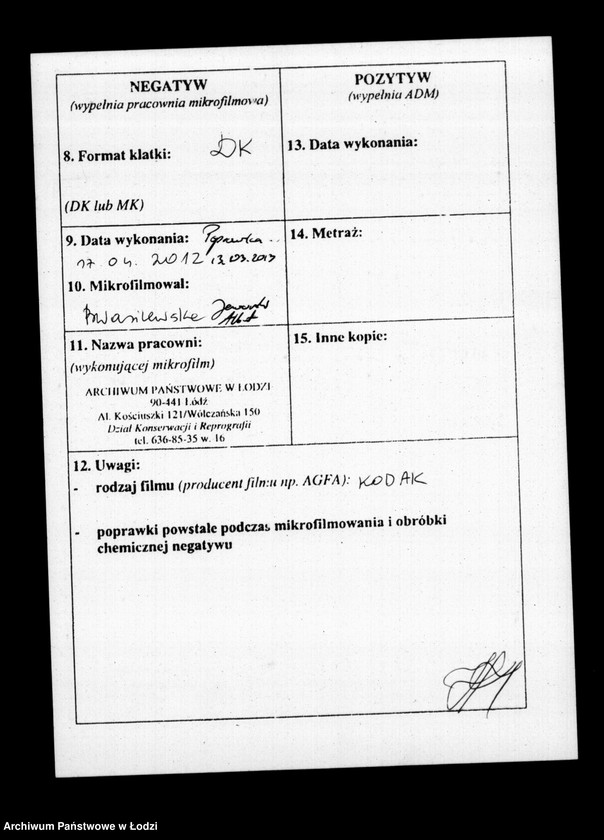 NEGATYW
(wypełnia pracownia mikrofilmowa)
8. Format klatki: DK
(DK lub MK)
9. Data wykonania: Poprawka
17 04. 2012 13.03.2013
10. Mikrofilmował:
11. Nazwa pracowni:
(wykonującej mikrofilm)
ARCHIWUM PAŃSTWOWE W ŁODZI
90-441 Łódź
Al. Kościuszki 121/Wólczańska 150
Dział Konserwacji i Reprografii
tel. 636-85-35 w. 16
POZYTYW
(wypełnia ADM)
13. Data wykonania:
14. Metraż:
15. Inne kopie:
12. Uwagi:
- rodzaj filmu (producent filmu np. AGFA): KODAK
- poprawki powstałe podczas mikrofilmowania i obróbki
chemicznej negatywu
Archiwum Państwowe w Łodzi